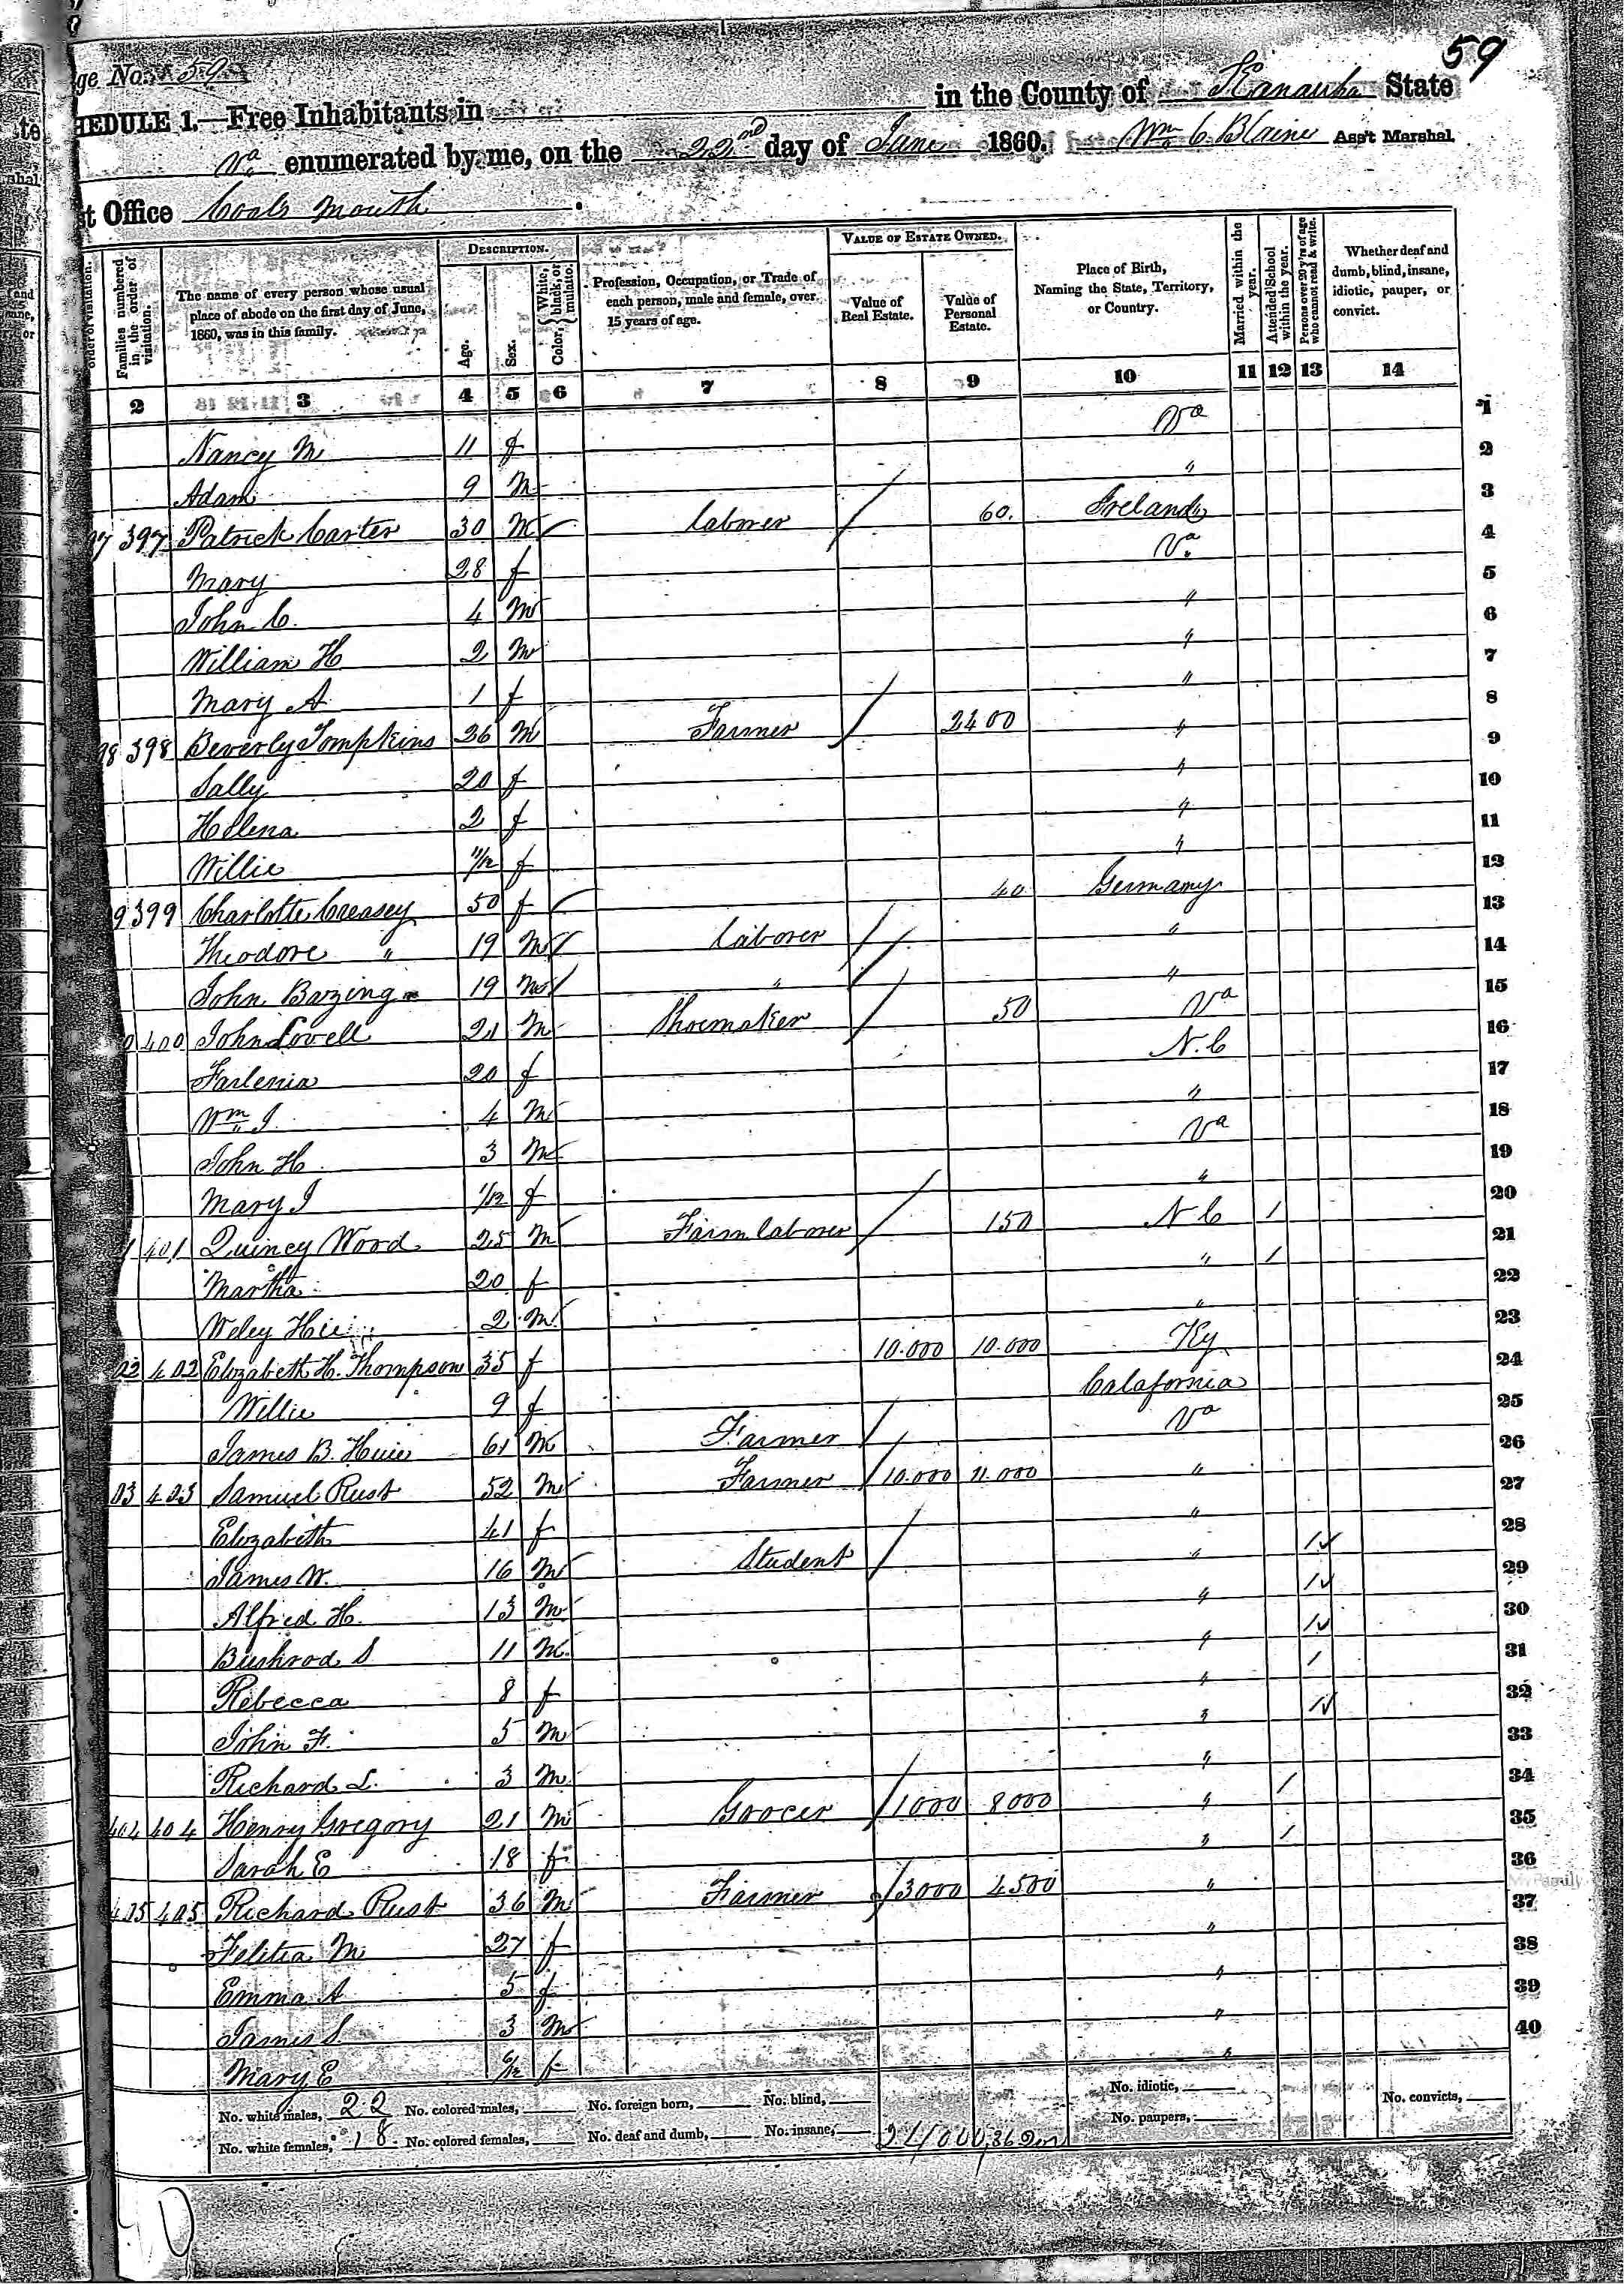 59
ge No. 59
HEDULE 1.—Free Inhabitants in in the County of Kanawha State
Va enumerated by me, on the 22nd day of June 1860. Wm. C. Blaine Ass't Marshal.
t Office Coals Mouth.
order of visitation. Families numbered in the order of visitation. The name of every person whose usual place of abode on the first day of June, 1860, was in this family. DESCRIPTION. Age. Sex. Color, White, black, or mulatto. Profession, Occupation, or Trade of each person, male and female, over 15 years of age. VALUE OF ESTATE OWNED. Value of Real Estate. Value of Personal Estate. Place of Birth, Naming the State, Territory, or Country. Married within the year. Attended School within the year. Persons over 20 y'rs of age who cannot read & write. Whether deaf and dumb, blind, insane, idiotic, pauper, or convict.
2 3 4 5 6 7 8 9 10 11 12 13 14
Nancy M 11 f Va 1
Adam 9 M " 2
97 397 Patrick Carter 30 M Laborer / 60. Ireland 3
Mary 28 f Va. 4
John C. 4 M " 5
William H 2 M " 6
Mary A 1 f " 7
98 398 Beverly Tompkins 36 M Farmer / 2400 " 8
Sally 20 f " 9
Helena 2 f " 10
Willie 11/12 f " 11
9 399 Charlotte Creasey 50 f 40 Germany 12
Theodore " 19 M Laborer / " 13
John Bazing 19 M " / " 14
0 400 John Lovell 21 M Shoemaker / 50 Va 15
Farlenia 20 f N.C 16
Wm J. 4 M " 17
John H. 3 M Va 18
Mary J 1/12 f " 19
1 401 Quincy Wood 25 M Farm laborer / 150 N C 1 20
Martha 20 f " 1 21
2 M " 22
02 402 Elizabeth H. Thompson 35 f 10.000 10.000 Ky 23
Willie 9 f Calafornia 24
James B. Huie 61 M Farmer / Va 25
03 403 Samuel Rust 52 M Farmer / 10.000 11.000 " 26
Elizabeth 41 f " 27
James W. 16 M Student / " 1 28
Alfred H. 13 M " 1 29
Bushrod S 11 M " 1 30
Rebecca 8 f " 1 31
John F. 5 M " 1 32
Richard L. 3 M " 33
404 404 Henry Gregory 21 M Groocer / 1000 8000 " 1 34
Sarah E 18 f " 1 35
405 405 Richard Rust 36 M Farmer / 3000 4500 " 36
Felitia M 27 f " 37
Emma A 5 f " 38
James S 3 M " 39
Mary E 6/12 f " 40
No. white males, 22 No. colored males, No. foreign born, No. blind, No. idiotic, No. convicts,
No. white females, 18 No. colored females, No. deaf and dumb, No. insane, 24000 No. paupers,